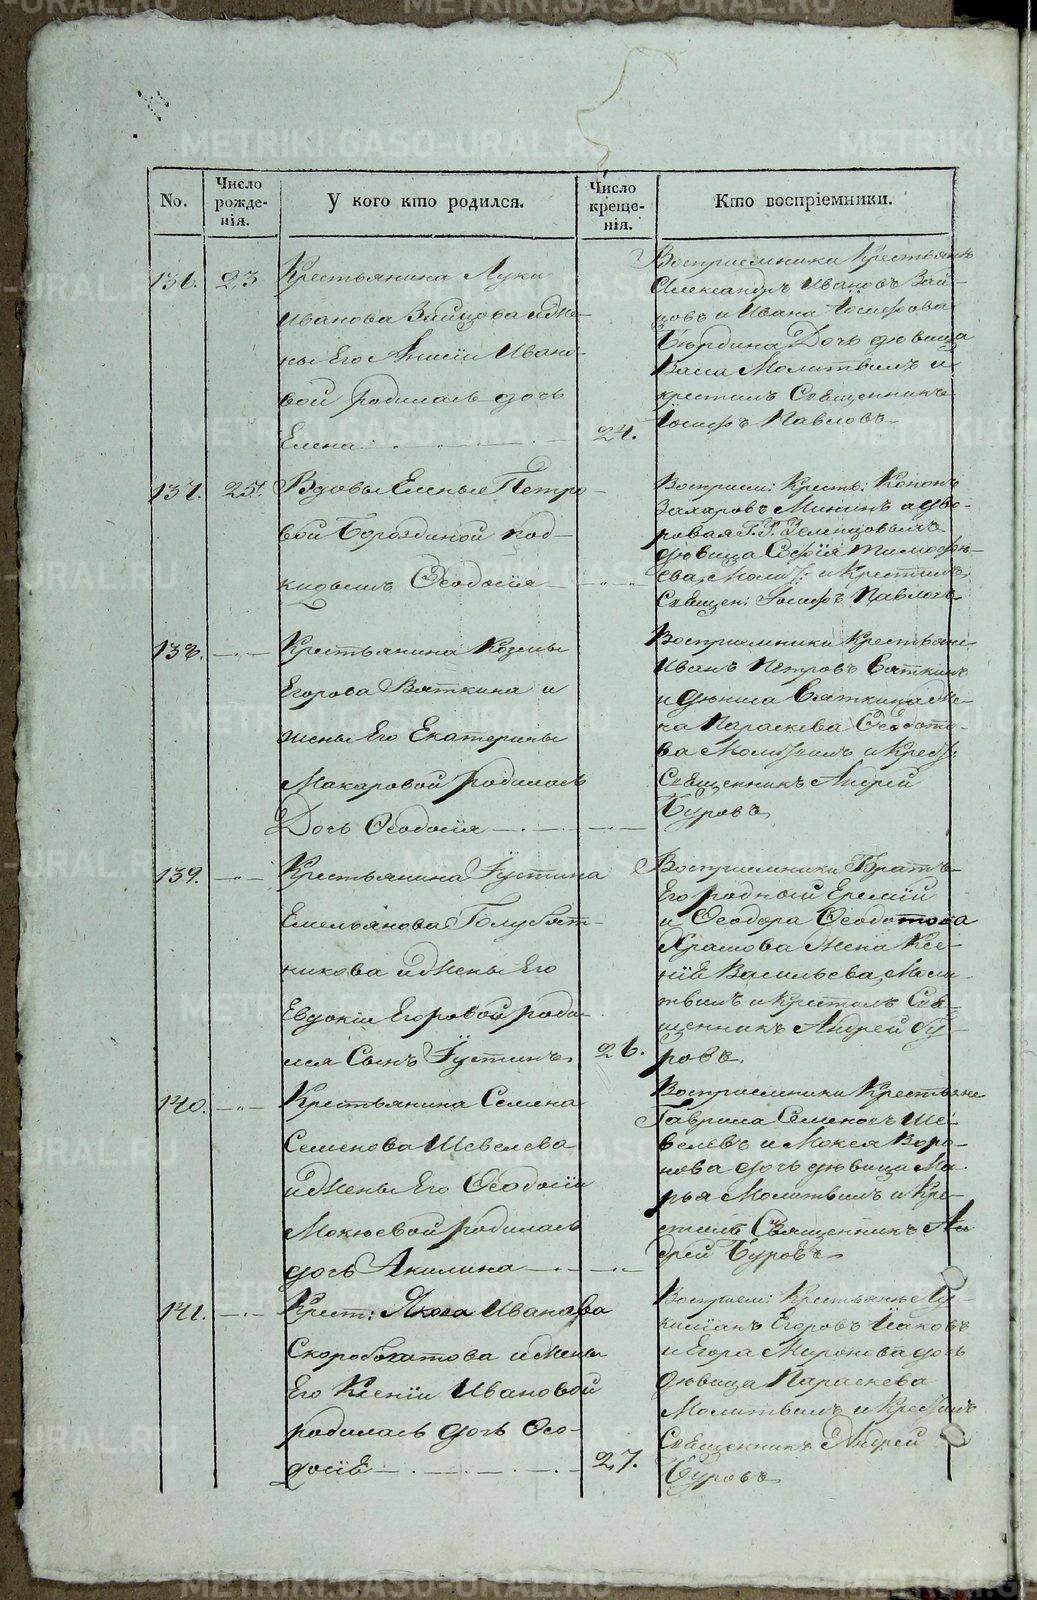 METRIKI.GASO-URAL.RU
No.
Число рожде-нія.
У кого кто родился.
Число креще-нія.
Кто воспріемники.
136.
23
Крестьянина Луки
Иванова Зайцова и Же-
ны Его Анисіи Ивано-
вой родилась дочь
Елена
24.
Восприемники Крестьянъ
Александръ Ивановъ Зай-
цовъ и Ивана Іосифова
Бърдина Дочь дѣвица
Молитвилъ и
крестилъ Священникъ
Іосифъ Павловъ
137.
25.
Вдовы Елены Петро-
вой Бороздиной под-
кидышъ Ѳеодосія
Восприем: Кресть: Кононъ
Захаровъ Мининъ а дво-
ровая Г. Г. Зеленцовыхъ
дѣвица Софія Тимофѣ-
ева, Молит: и Крестилъ
Священ: Іосифъ Павловъ
138.
Крестьянина Козмы
Егорова Вяткина и
жены Его Екатерины
Макаровой родилась
Дочь Ѳеодосія
Восприемники Крестьяне
Иванъ Петровъ Вяткинъ
и Вяткина Же-
на Параскева Ѳедото-
ва Молитвилъ и Крест:
Священникъ Андрей
Буровъ
139.
Крестьянина Іустина
Емельянова Голубят-
никова и Жены Его
Евдокіи Егоровой роди-
лся Сынъ Іустинъ
26.
Восприемники Братъ
Его родный Еремій
и Ѳеодора Ѳеодотова
Храмова Жена Ксе-
нія Васильева, Моли-
твилъ и Крестилъ Свя-
щенникъ Андрей Бу-
ровъ.
140.
Крестьянина Семена
Семенова Шевелева
и Жены Его Ѳеодосіи
Мокіевой родилась
дочь Акилина
Восприемники Крестьяне
Гаврила Семеновъ Ше-
велевъ и Мокея Воро-
нова дочь дѣвица Ма-
рья Молитвилъ и Кре-
стилъ Священникъ Ан-
дрей Буровъ
141.
Крест: Якова Иванова
Скоробогатова и Жены
Его Ксеніи Ивановой
родилась дочь Ѳео-
досія
27.
Восприем: Крестьяне Лу-
кіянъ Егоровъ Іаковъ
и Егора Миронова дочь
дѣвица Параскева
Молитвилъ и Крестилъ
Священникъ Андрей
Буровъ